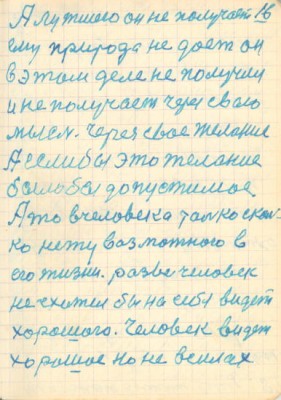 А лутшого он не получает 16
ему природа не дает он
в этом деле не получил
и не получает через свою
мысл. Через свое желание
А если бы это желание
было бы допустимое.
А то в человека только сколь-
ко нету возможного в
его жизни. разве человек
не схотел бы на себя видет
хорошого. Человек видет
хорошое но не в силах